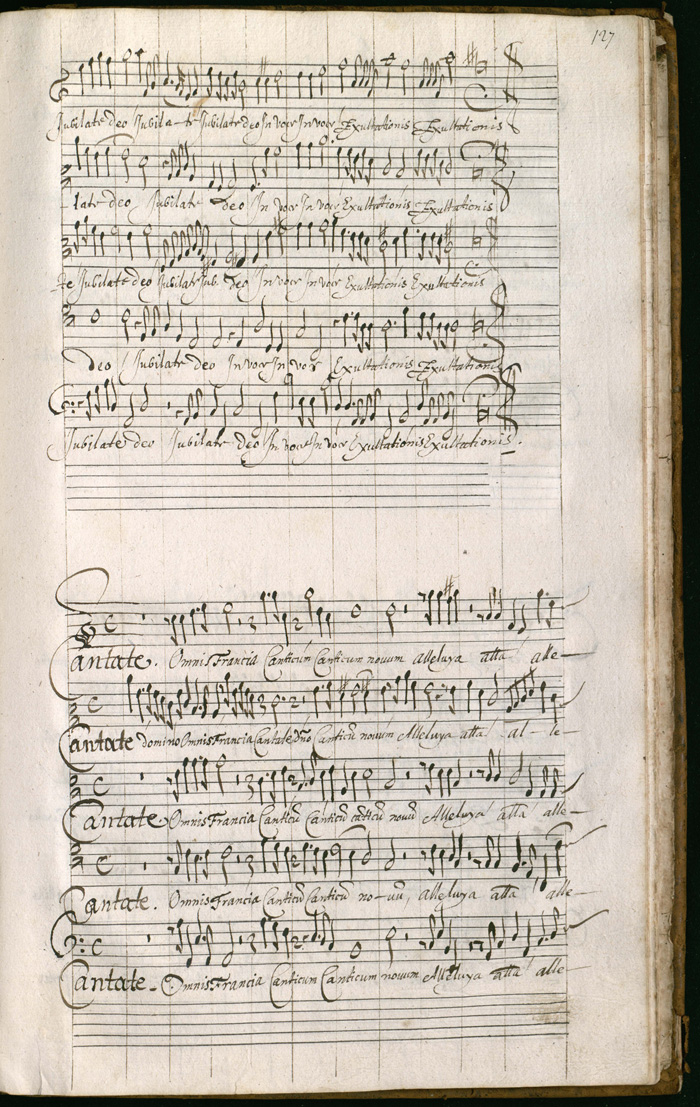 127
Jubilate deo Jubila-te Jubilate deo In voce In voce Exultationis Exultationis
-late deo Jubilate deo In voce In voce Exultationis Exultationis
Jubilate deo Jubilate Jub. deo In voce In voce Exultationis Exultationis
deo Jubilate deo In voce In voce Exultationis Exultationis
Jubilate deo Jubilate deo In voce In voce Exultationis Exultationis.
Cantate. Omnis Francia Canticum Canticum novum alleluya alla alle-
Cantate domino Omnis Francia Cantate Dño Canticũ novum Alleluya alla al-le-
Cantate Omnis Francia Canticũ Canticũ canticũ novũ Alleluya alla alle-
Cantate. Omnis Francia Canticũ Canticũ no-vũ, alleluya alla alle-
Cantate. Omnis Francia Canticum Canticum novum Alleluya alla alle-